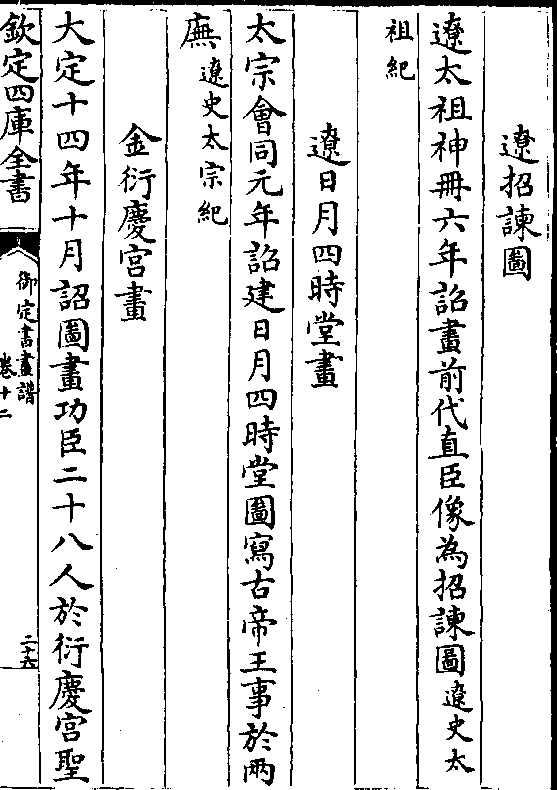 遼招諫圖
遼太祖神冊六年詔畫前代直臣像為招諫圖遼史太
祖紀
遼日月四時堂畫
太宗會同元年詔建日月四時堂圖寫古帝王事於兩
廡遼史太宗紀
金衍慶宮畫
大定十四年十月詔圖畫功臣二十八人於衍慶宮聖
欽定四庫全書
御定書畫譜
卷十二
二十六